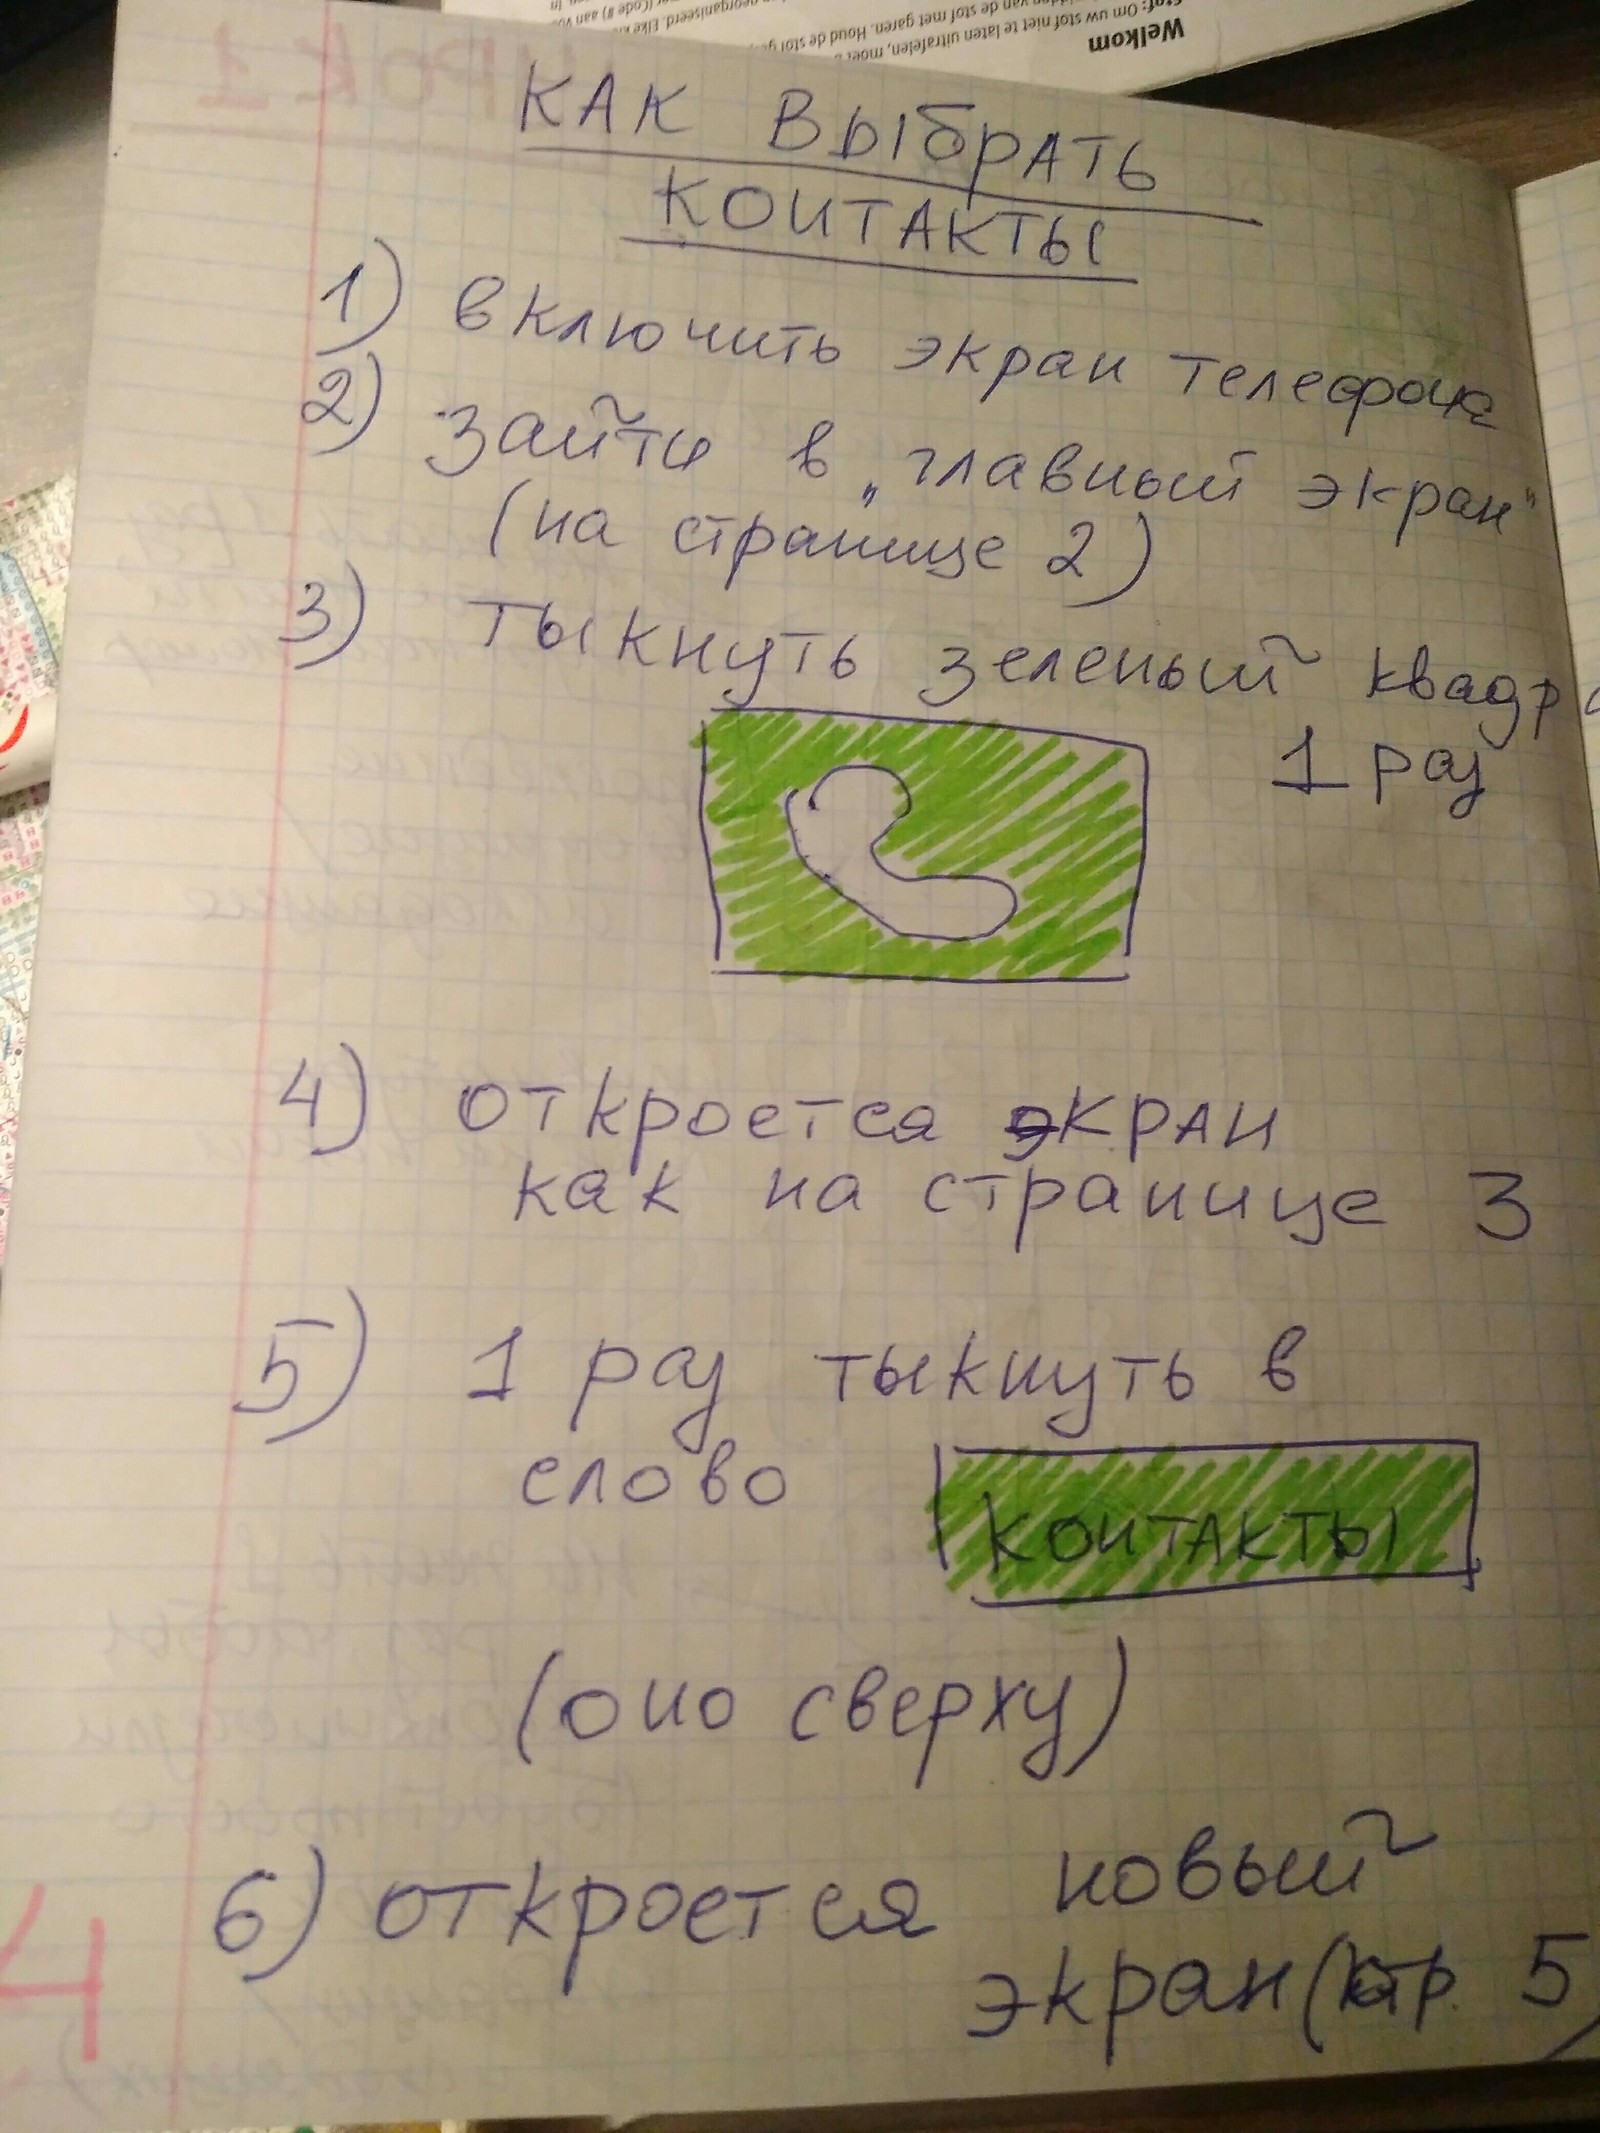 Welkom
Stof: Om uw stof niet te laten uitrafelen, moet
van de stof met garen. Houd de stof
georganiseerd. Elke
(Code #) aan
УРОК 1
КАК ВЫБРАТЬ
КОНТАКТЫ
1) включить экран телефона
2) зайти в „главный экран"
(на странице 2)
3) тыкнуть зеленый квадра
1 раз
4) откроется экран
как на странице 3
5) 1 раз тыкнуть в
слово КОНТАКТЫ
(оно сверху)
6) откроется новый
экран (стр. 5)
4